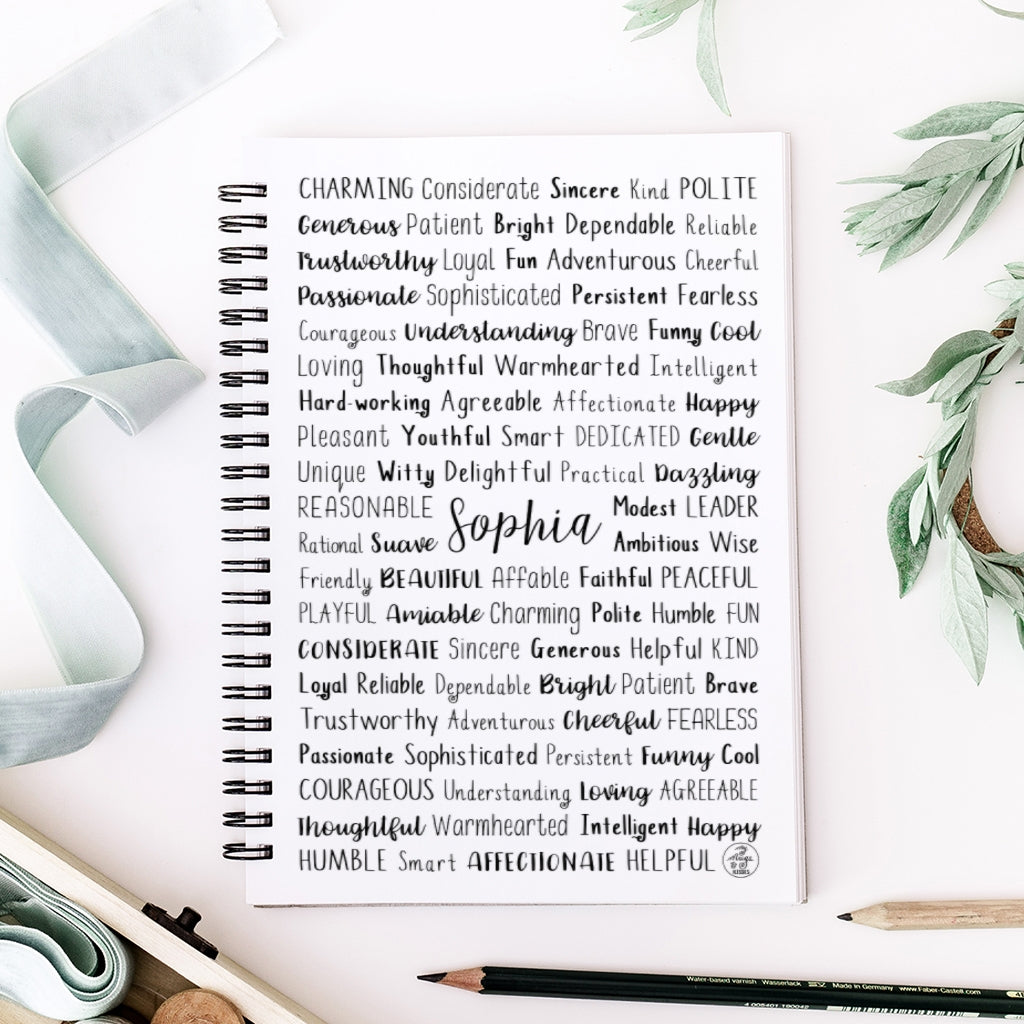 CHARMING Considerate Sincere Kind POLITE
Generous Patient Bright Dependable Reliable
Trustworthy Loyal Fun Adventurous Cheerful
Passionate Sophisticated Persistent Fearless
Courageous Understanding Brave Funny Cool
Loving Thoughtful Warmhearted Intelligent
Hard-working Agreeable Affectionate Happy
Pleasant Youthful Smart DEDICATED Gentle
Unique Witty Delightful Practical Dazzling
REASONABLE Modest LEADER
Sophia
Rational Suave Ambitious Wise
Friendly BEAUTIFUL Affable Faithful PEACEFUL
PLAYFUL Amiable Charming Polite Humble FUN
CONSIDERATE Sincere Generous Helpful KIND
Loyal Reliable Dependable Bright Patient Brave
Trustworthy Adventurous Cheerful FEARLESS
Passionate Sophisticated Persistent Funny Cool
COURAGEOUS Understanding Loving AGREEABLE
Thoughtful Warmhearted Intelligent Happy
HUMBLE Smart AFFECTIONATE HELPFUL
Water-based varnish Wasserlack Made in Germany www.Faber-Castell.com
4 005401 190042